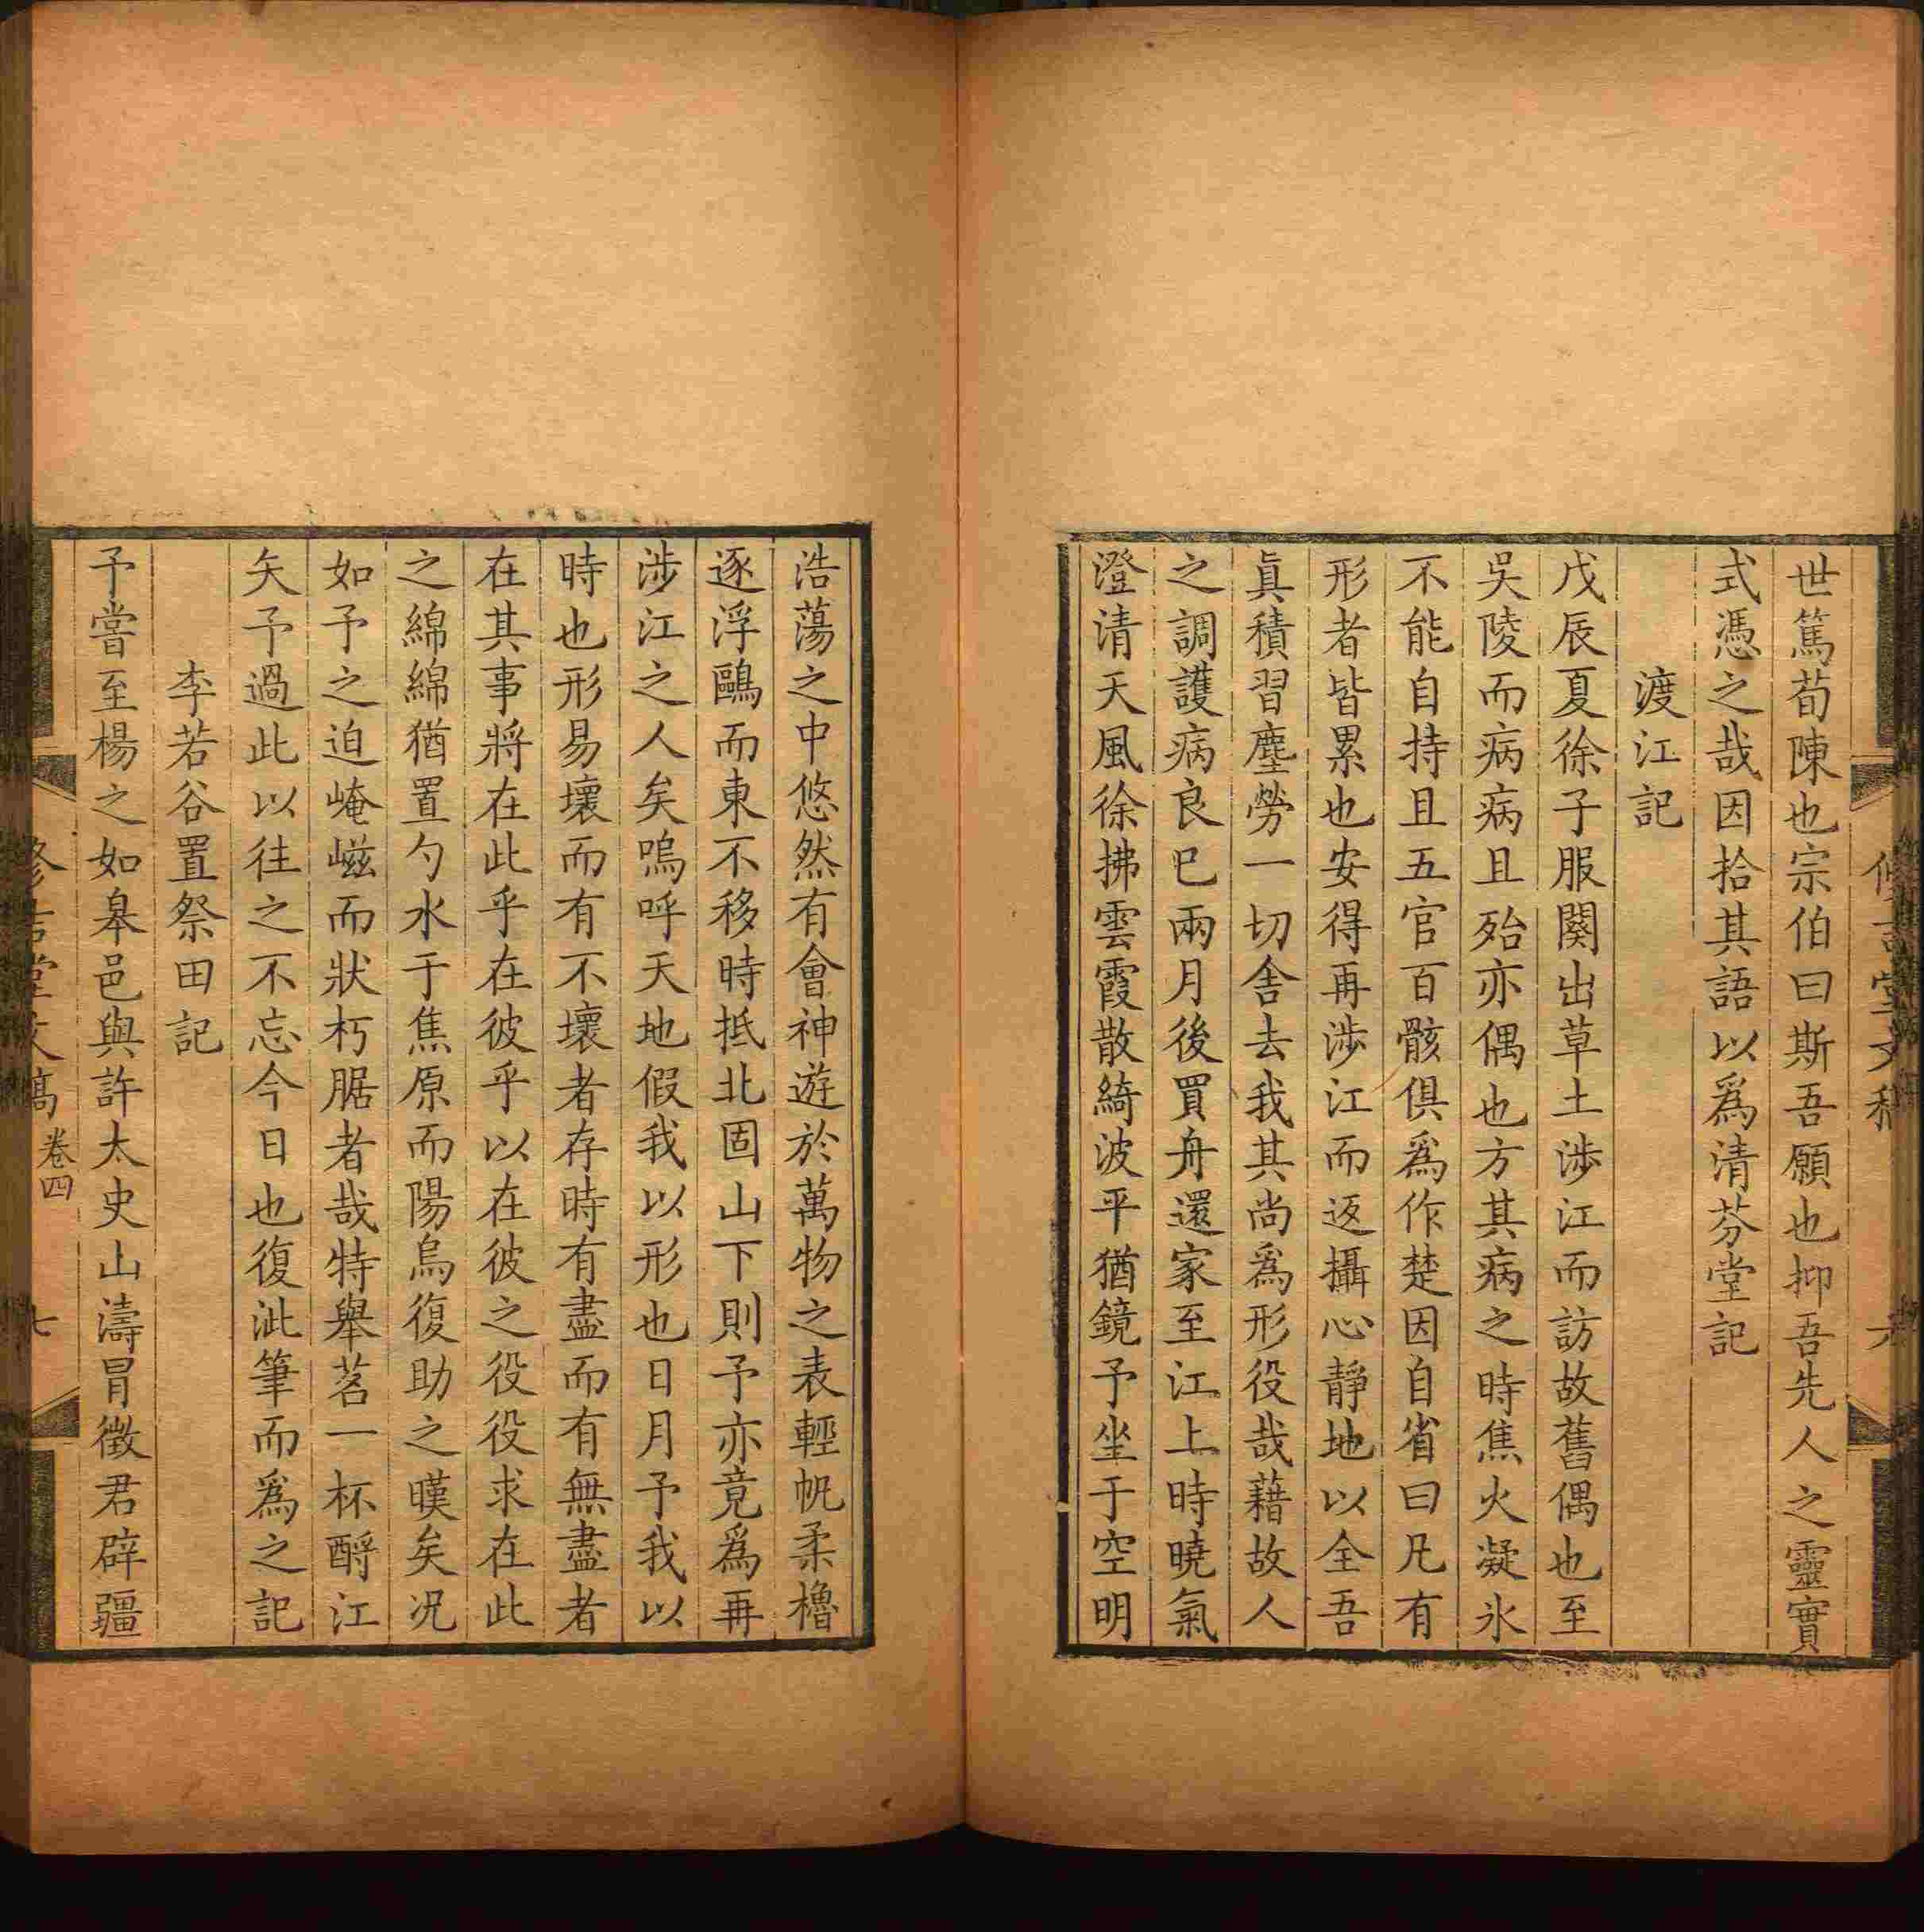 世篤荀陳也宗伯曰斯吾願也抑吾先人之靈實
式憑之哉因拾其語以爲清芬堂記
渡江記
戊辰夏徐子服闋出草土涉江而訪故舊偶也至
吳陵而病病且殆亦偶也方其病之時焦火凝氷
不能自持且五官百骸俱爲作楚因自省曰凡有
形者皆累也安得再涉江而返攝心靜地以全吾
眞積習塵勞一切舍去我其尚爲形役哉藉故人
之調護病良已兩月後買舟還家至江上時曉氣
澄清天風徐拂雲霞散綺波平猶鏡予坐于空明
浩蕩之中悠然有會神遊於萬物之表輕帆柔櫓
逐浮鷗而東不移時抵北固山下則予亦竟爲再
涉江之人矣嗚呼天地假我以形也日月予我以
時也形易壞而有不壞者存時有盡而有無盡者
在其事將在此乎在彼乎以在彼之役役求在此
之綿綿猶置勺水于焦原而陽烏復助之暵矣况
如予之迫崦嵫而狀朽腒者哉特舉茗一杯酹江
矢予過此以往之不忘今日也復泚筆而爲之記
李若谷置祭田記
予嘗至楊之如皋邑與許太史山濤冒徵君辟疆
堂文 卷四 七